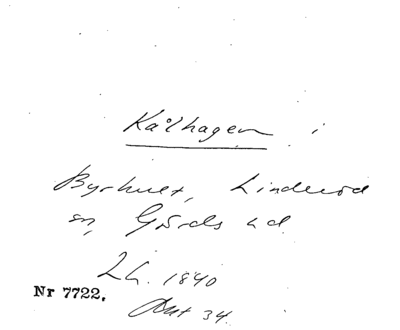 Kålhagen i
Byrhult, Linderöd
sn, Gärds hd.
Lh. 1840
Nr 7722. Akt 34.